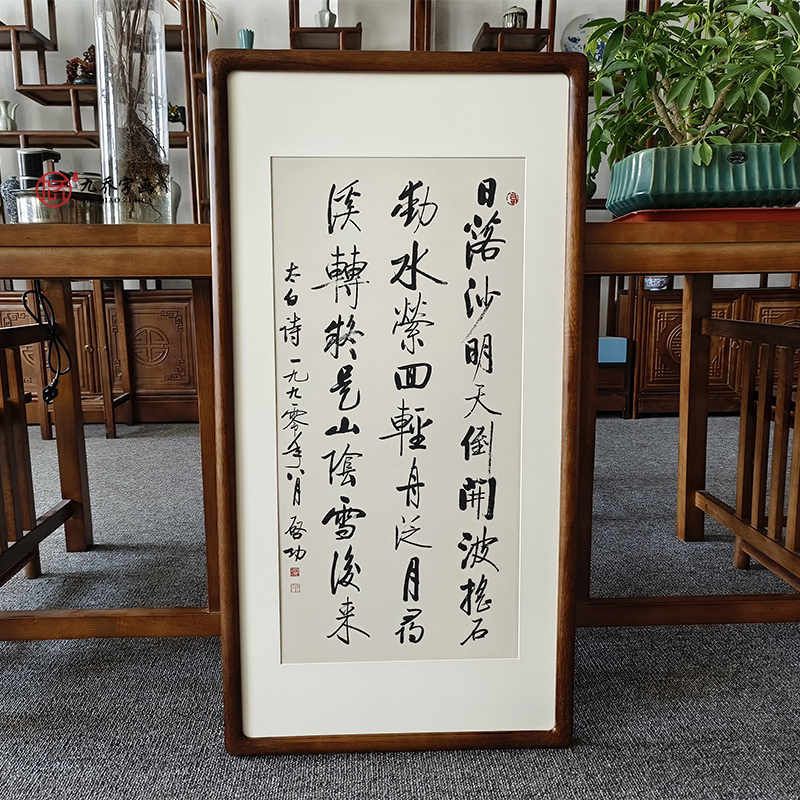 日落沙明天倒開波搖石
動水縈回輕舟泛月尋
溪轉疑是山陰雪後来
太白诗 一九九零年八月 啓功
九乔字画